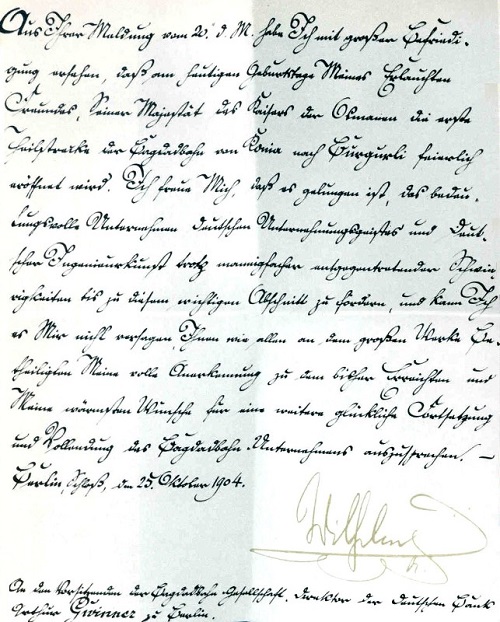 Aus Ihrer Meldung vom 20. d. M. habe Ich mit großer Befriedi-
gung ersehen, daß am heutigen Geburtstage Meines Erlauchten
Freundes, Seiner Majestät des Kaisers der Osmanen die erste
Theilstrecke der Bagdadbahn von Konia nach Burgurli feierlich
eröffnet wird. Ich freue Mich, daß es gelungen ist, das bedeu-
tungsvolle Unternehmen deutschen Unternehmungsgeistes und deut-
scher Ingenieurkunst trotz mannigfacher entgegentretender Schwie-
rigkeiten bis zu diesem wichtigen Abschnitt zu fördern, und kann Ich
es Mir nicht versagen Ihnen wie allen an dem großen Werke Be-
theiligten Meine volle Anerkennung zu dem bisher Erreichten und
Meine wärmsten Wünsche für eine weitere glückliche Fortsetzung
und Vollendung des Bagdadbahn-Unternehmens auszusprechen. —
Berlin, Schloß, den 25. Oktober 1904.
Wilhelm
An den Vorsitzenden der Bagdadbahn-Gesellschaft, Direktor der Deutschen Bank
Arthur Gwinner zu Berlin.